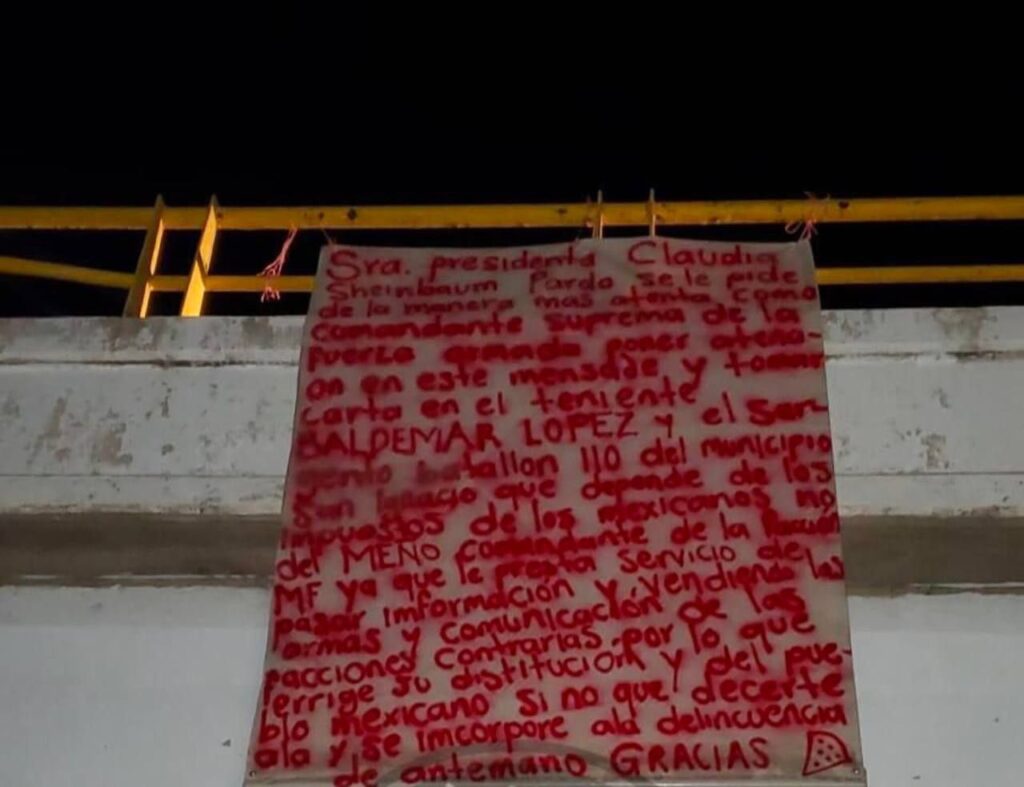 Sra. presidenta Claudia
Sheinbaum Pardo se le pide
de la manera mas atenta como
comandante suprema de la
fuerza armada poner atenci-
on en este mensaje y tomar
carta en el teniente
BALDEMAR LOPEZ y el Sar-
gento batallon 110 del municipio
San Ignacio que depende de los
impuestos de los mexicanos no
del MENO comandante de la faccion
MF ya que le presta servicio de
pasar imformación y vendiendo las
armas y comunicación de las
facciones contrarias por lo que
errige su distitución y del pue-
blo mexicano si no que decerte
ala y se imcorpore ala delincuencia
de antemano GRACIAS